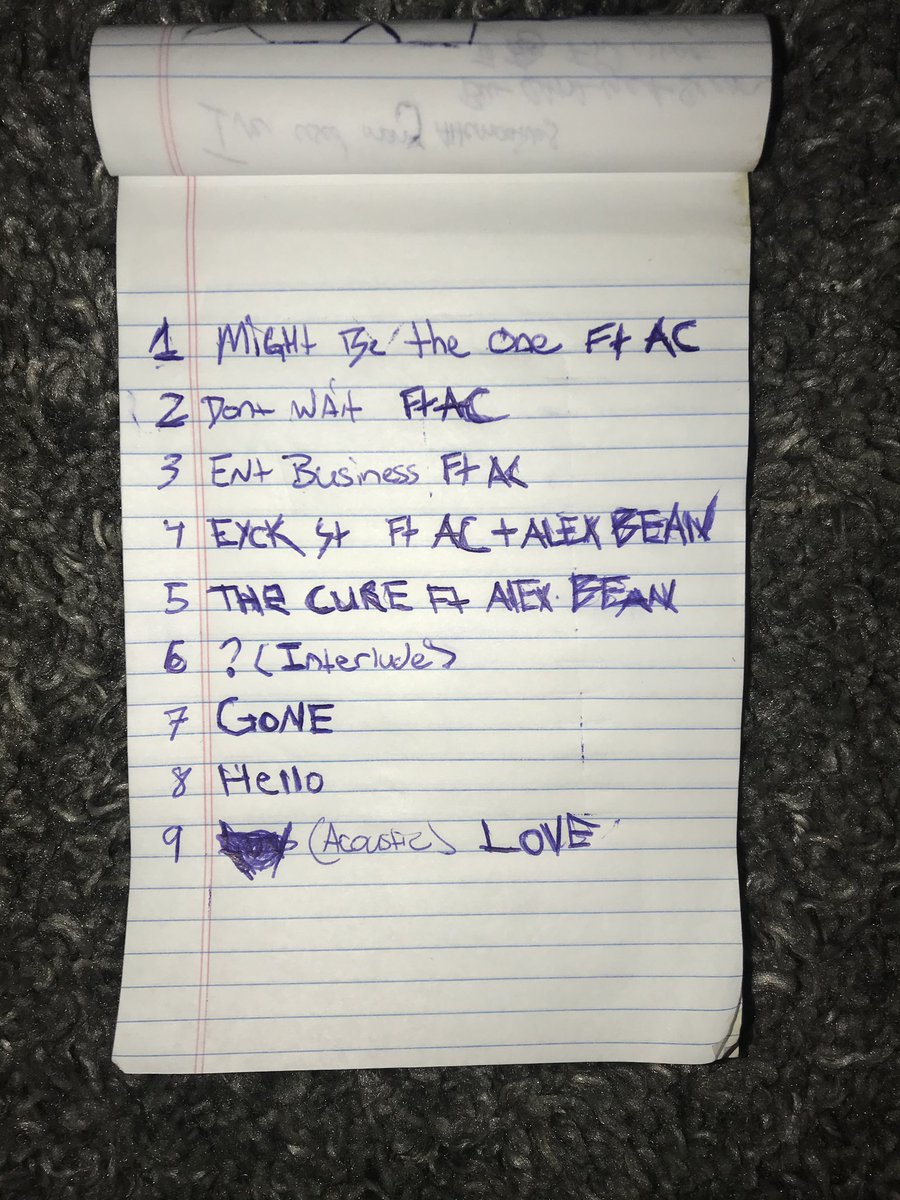 1 MIGHt Be the one Ft AC
2 Dont WAit Ft AC
3 Ent Business Ft AC
4 EYCK St Ft AC + ALEX BEAN
5 THE CURE Ft ALEX BEAN
6 ? (Interlude)
7 GONE
8 Hello
9 (Acoustic) LOVE